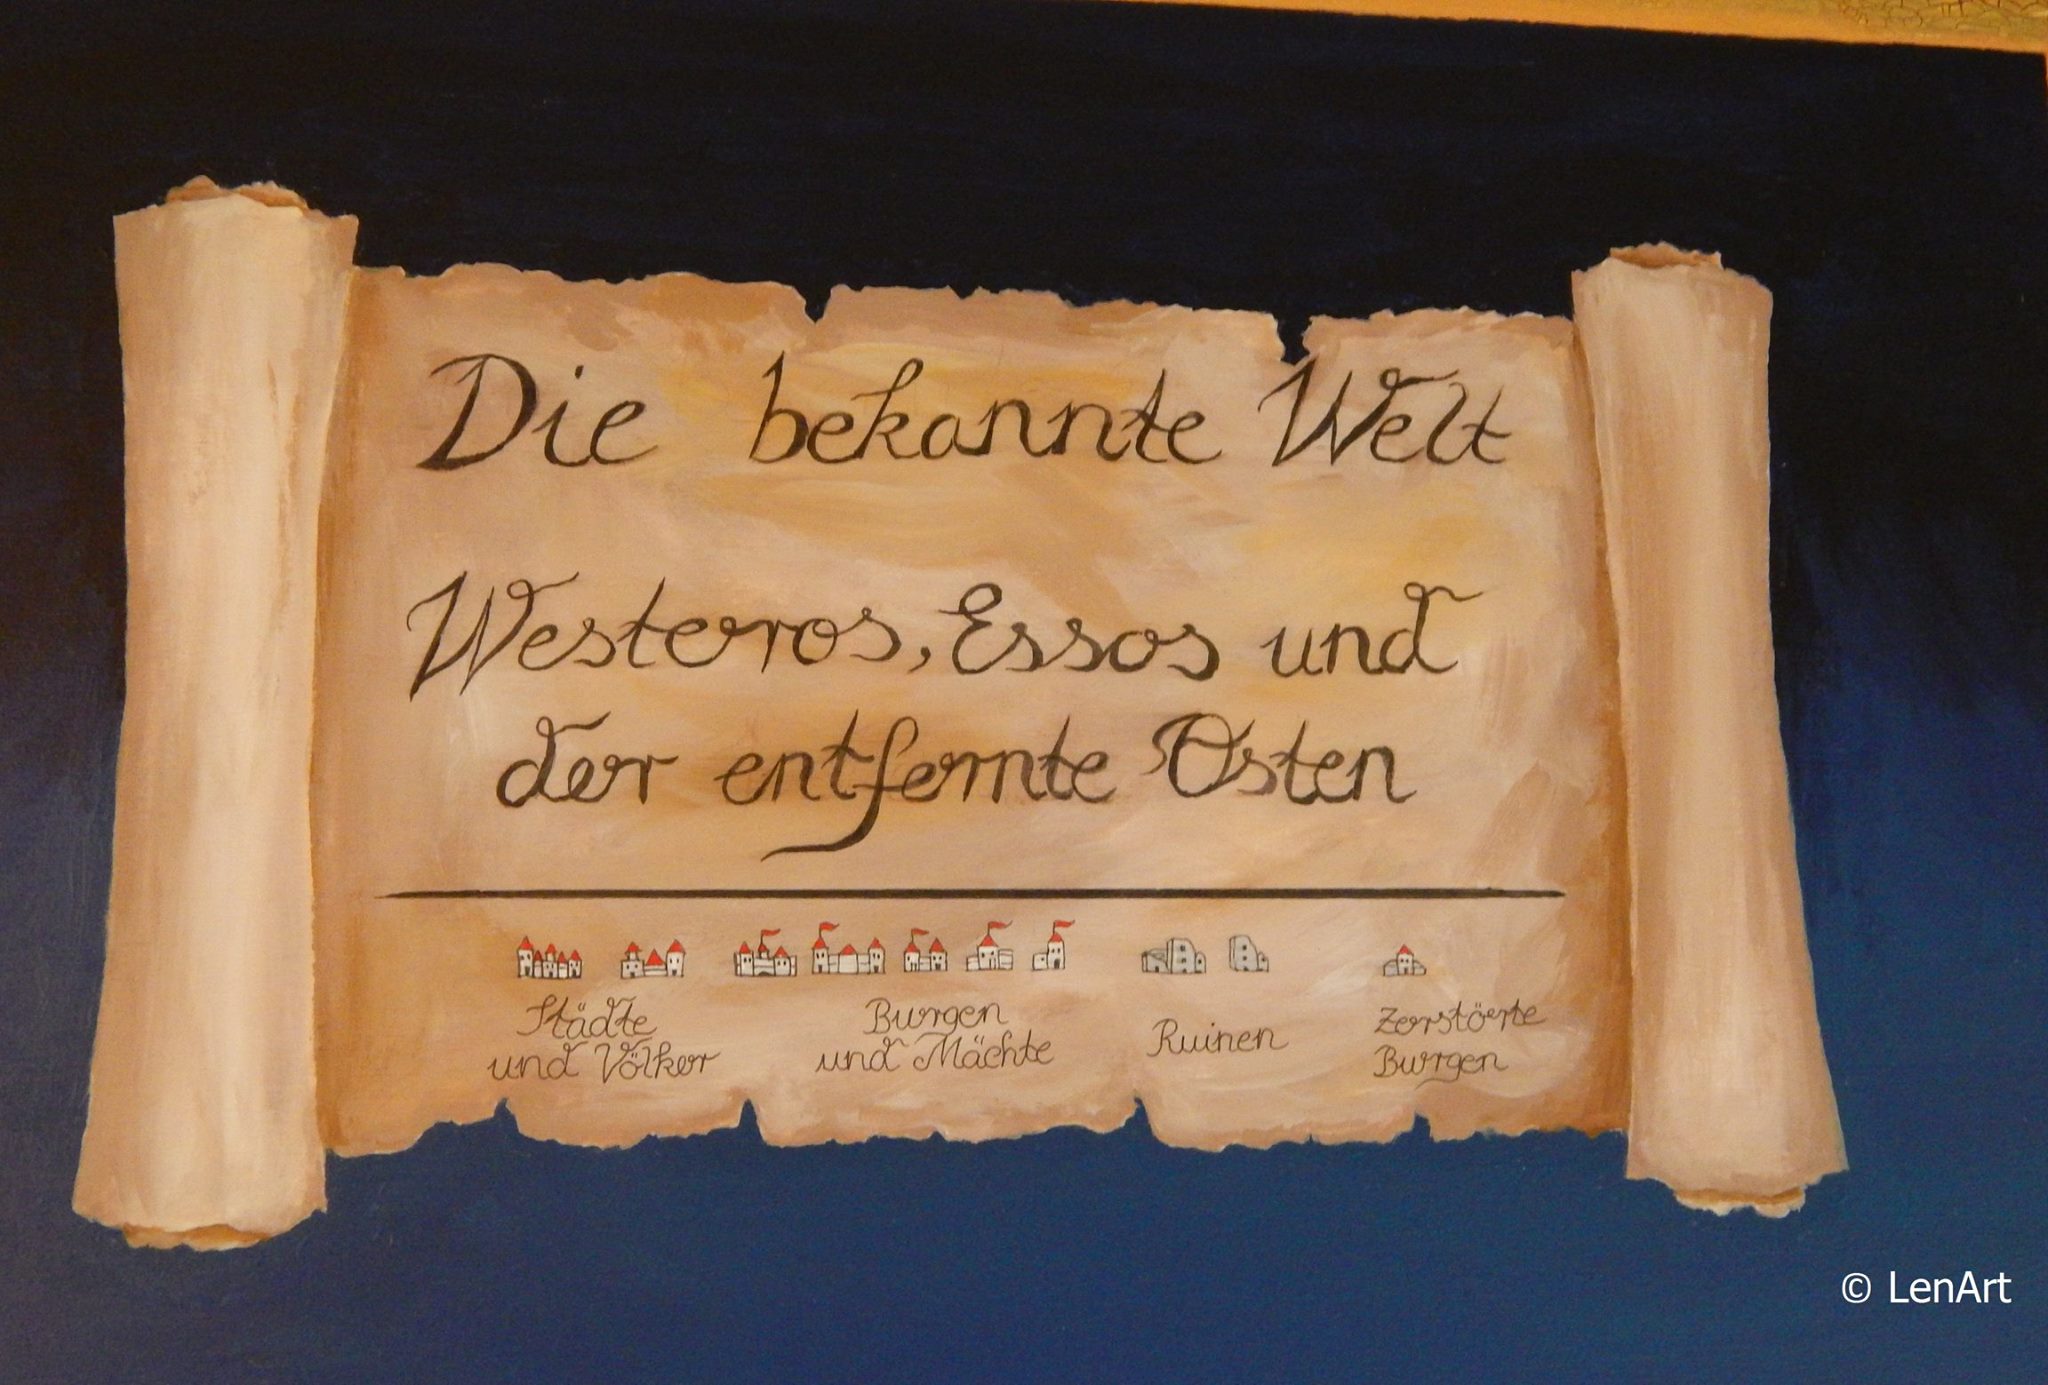 Die bekannte Welt
Westeros, Essos und
der entfernte Osten
Städte
und Völker
Burgen
und Mächte
Ruinen
Zerstöerte
Burgen
© LenArt